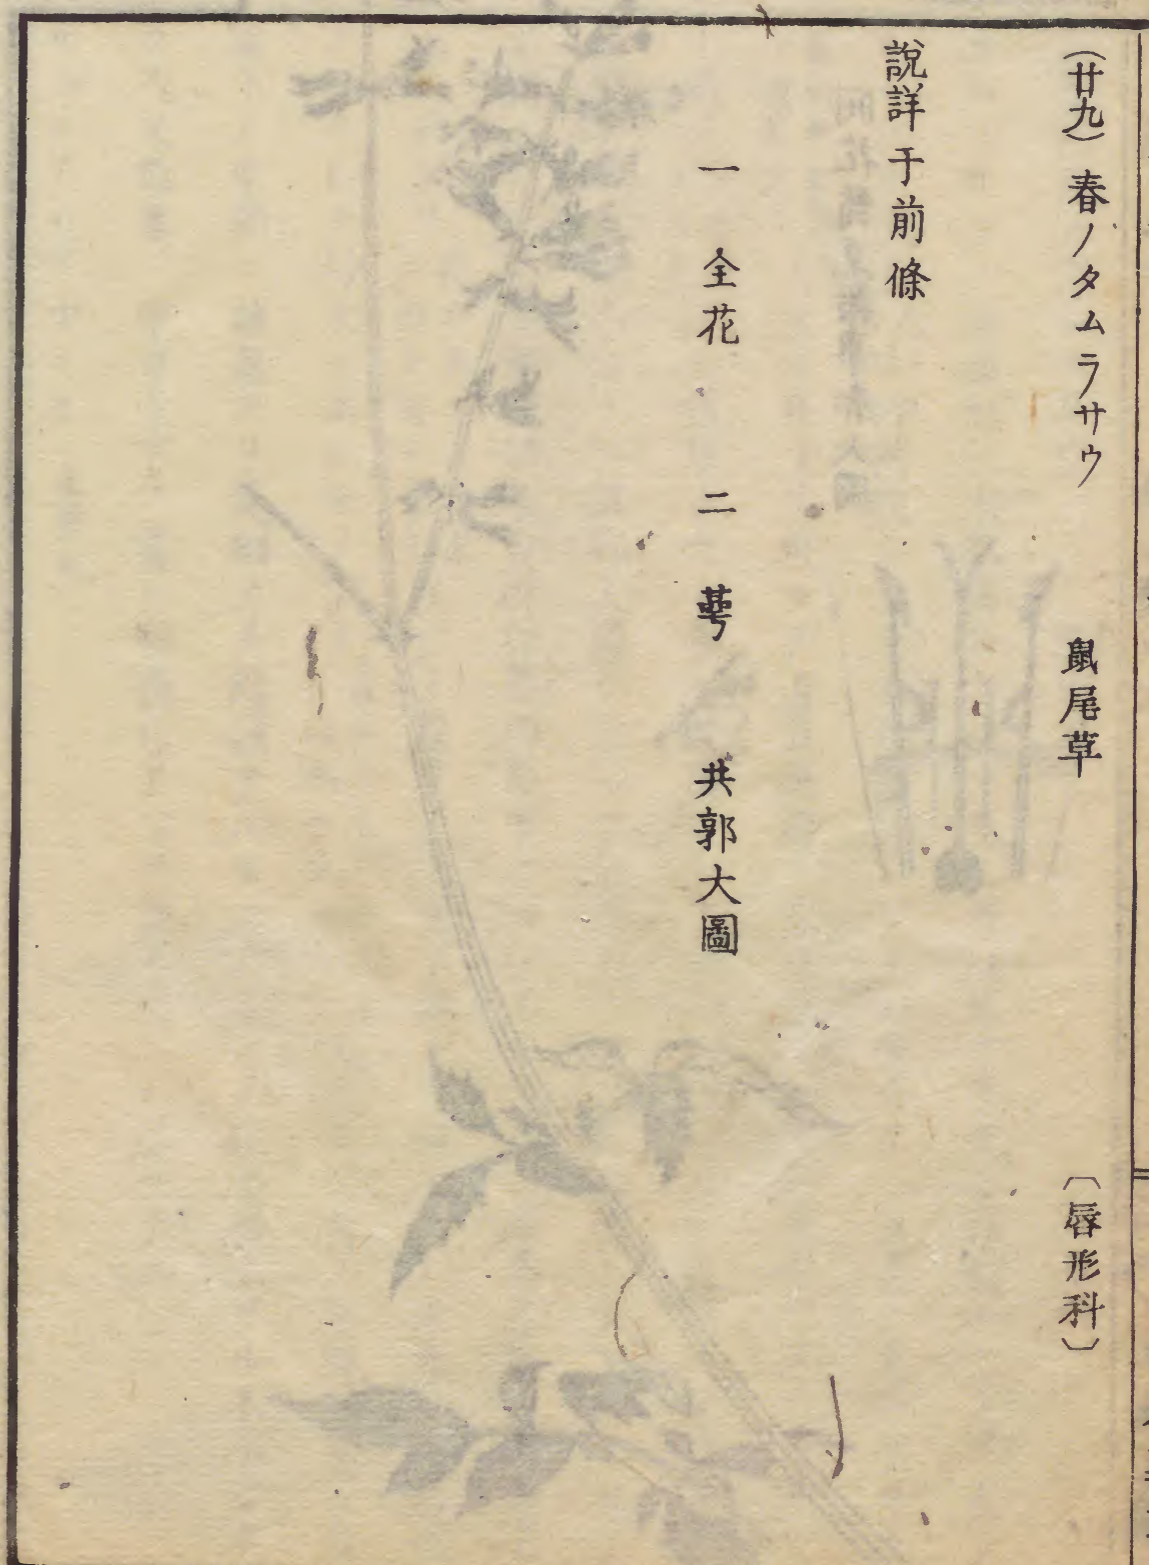 （廿九）春ノタムラサウ　鼠尾草　〔唇形科〕
說詳于前條
一 全花　二 萼　共郭大圖